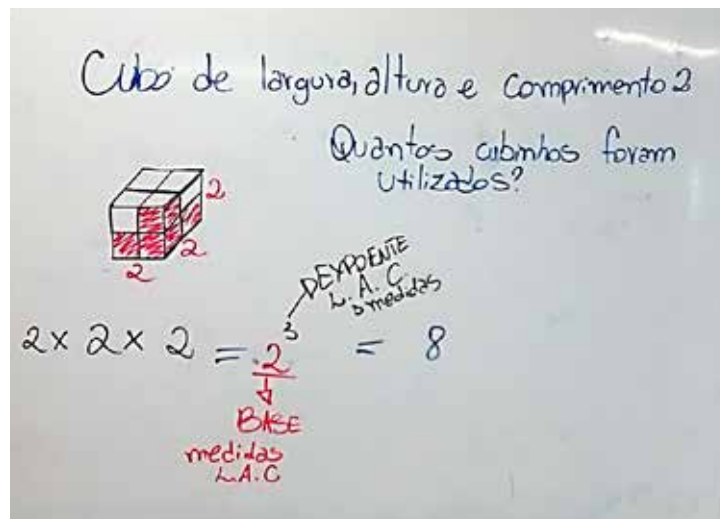 Cubo de largura, altura e comprimento 2
Quantos cubinhos foram
utilizados?
2
2
2
EXPOENTE
L. A. C.
3 medidas
2 x 2 x 2 = 2³ = 8
BASE
medidas
L.A.C